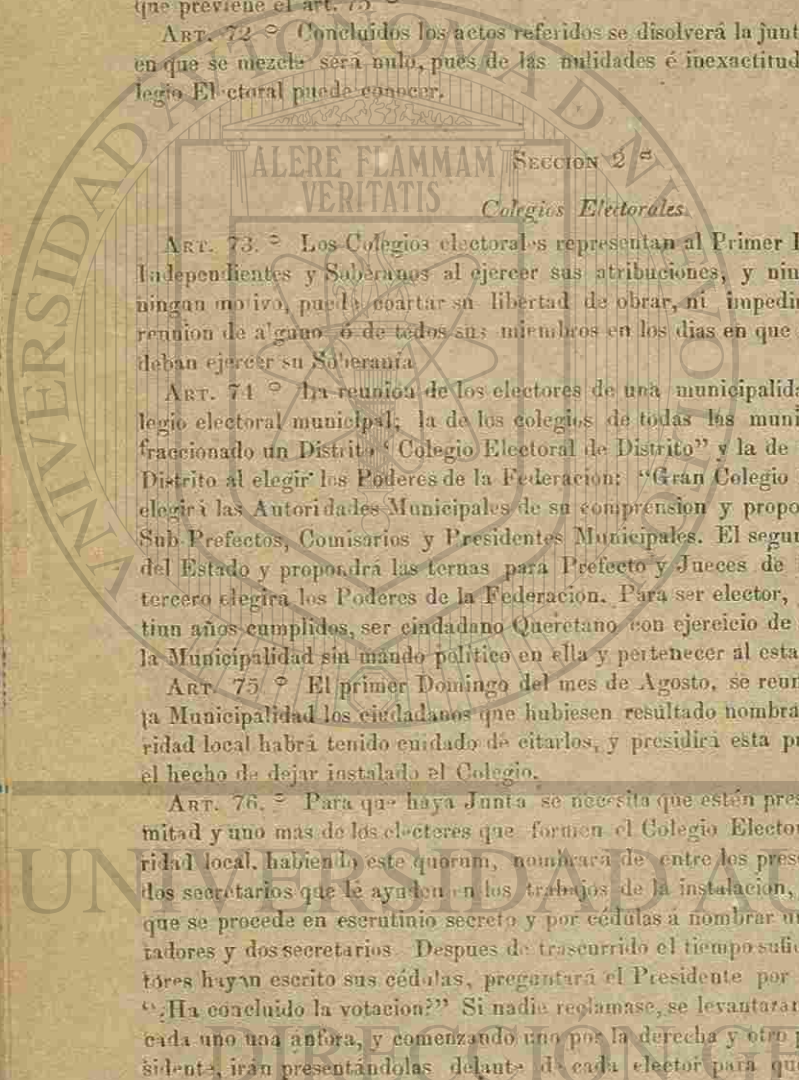 que previene el art. 75 °
ART. 72 ° Concluidos los actos referidos se disolverá la junt
en que se mezcle será nulo, pues de las nulidades é inexactitud
legio El ctoral puede conocer.
ALERE FLAMMAM
VERITATIS
SECCION 2 ª
Colegios Electorales.
ART. 73. ° Los Colegios electorales representan al Primer
Independientes y Soberanos al ejercer sus atribuciones, y nin
ningun motivo, puede coartar su libertad de obrar, ni impedi
reunion de alguno ó de todos sus miembros en los dias en que
deban ejercer su Soberanía
ART. 74 ° La reunion de los electores de una municipalida
legio electoral municipal; la de los colegios de todas las muni
fraccionado un Distrito “Colegio Electoral de Distrito” y la de
Distrito al elegir los Poderes de la Federacion: “Gran Colegio
elegirá las Autoridades Municipales de su comprension y propo
Sub-Prefectos, Comisarios y Presidentes Municipales. El segun
del Estado y propondrá las ternas para Prefecto y Jueces de
tercero elegira los Poderes de la Federacion. Para ser elector,
tiun años cumplidos, ser ciudadano Queretano con ejercicio de
la Municipalidad sin mando político en ella y pertenecer al esta
ART. 75 ° El primer Domingo del mes de Agosto, se reun
ta Municipalidad los ciudadanos que hubiesen resultado nombra
ridad local habrá tenido cuidado de citarlos, y presidirá esta p
el hecho de dejar instalado el Colegio.
ART. 76. ° Para que haya Junta se necesita que estén pres
mitad y uno mas de los electores que formen el Colegio Electo
ridad local, habiendo este quorum, nombrará de entre los pres
dos secretarios que le ayuden en los trabajos de la instalacion,
que se procede en escrutinio secreto y por cédulas a nombrar
tadores y dos secretarios Despues de trascurrido el tiempo sufi
tores hayan escrito sus cédulas, preguntará el Presidente por
“¿Ha concluido la votacion?” Si nadie reclamase, se levantaran
cada uno una ánfora, y comenzando uno por la derecha y otro p
sidente, irán presentándolas delante de cada elector para que
UNIVERSIDAD AUTONOMA DE NUEVO
UNIVERSIDAD AU
DIRECCIÓN GE